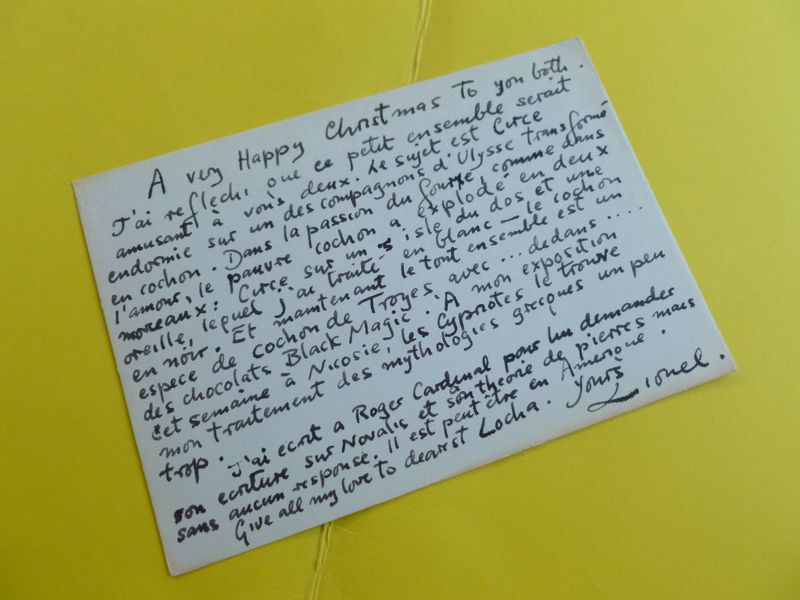 A very Happy Christmas To you both.
J'ai reflechi que ce petit ensemble serait
amusant à vous deux. Le sujet est Circe
endormie sur un des compagnons d'Ulysse transformé
en cochon. Dans la passion du fourré, comme dans
l'amour, le pauvre cochon a explodé en deux
morceaux: Circe sur un isle du dos et une
oreille, lequel j'ai traités en blanc — le cochon
en noir. Et maintenant le tout ensemble est un
espece de cochon de Troyes avec ... dedans ....
des chocolats Black Magic. A mon exposition
cet semaine à Nicosie, les Cypriotes le trouve
mon traitement des mythologies grecques un peu
trop.
J'ai ecrit a Roger Cardinal pour lui demander
son ecriture sur Novalis et son theorie de pierres mais
sans aucun response. Il est peut être en Amerique.
Give all my love to dearest Locha. Yours
Lionel.